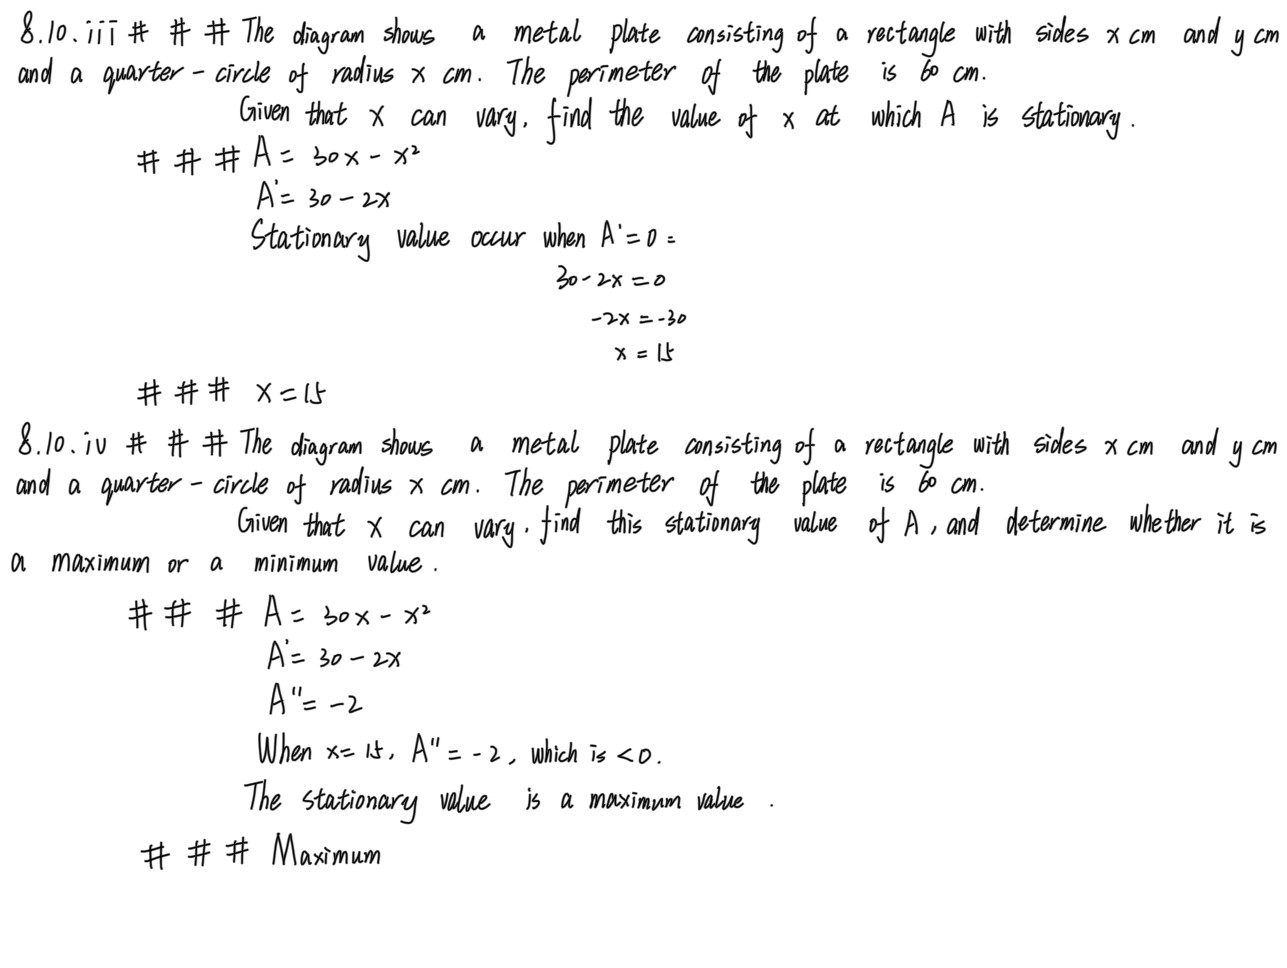 8.10.iii # # # The diagram shows a metal plate consisting of a rectangle with sides x cm and y cm
and a quarter - circle of radius x cm. The perimeter of the plate is 60 cm.
Given that x can vary, find the value of x at which A is stationary.
# # # A = 30x - x²
A' = 30 - 2x
Stationary value occur when A' = 0 =
30 - 2x = 0
-2x = -30
x = 15
# # # x = 15
8.10.iv # # # The diagram shows a metal plate consisting of a rectangle with sides x cm and y cm
and a quarter - circle of radius x cm. The perimeter of the plate is 60 cm.
Given that x can vary, find this stationary value of A, and determine whether it is
a maximum or a minimum value.
# # # A = 30x - x²
A' = 30 - 2x
A" = -2
When x = 15, A" = -2, which is < 0.
The stationary value is a maximum value.
# # # Maximum